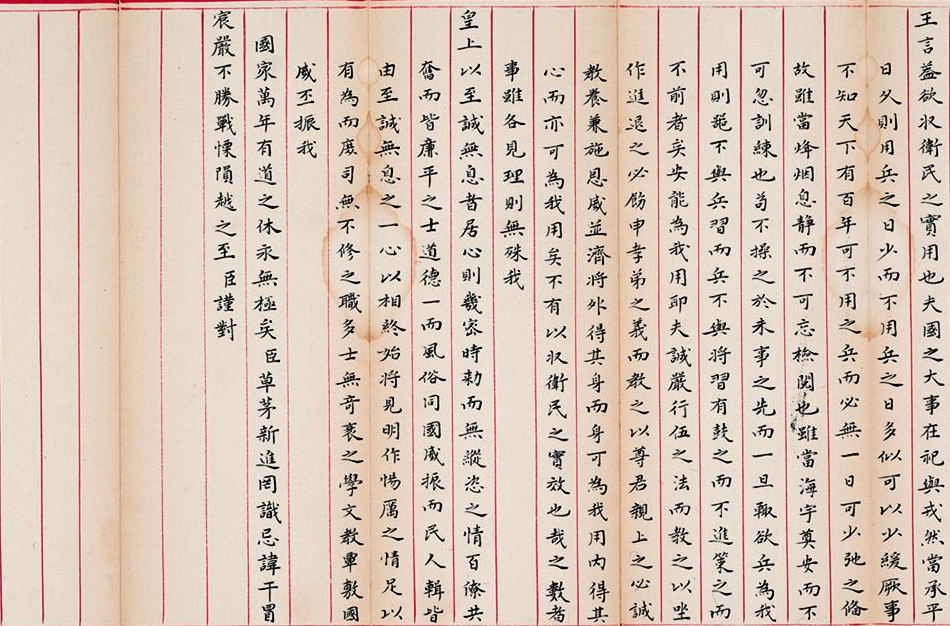 王言蓋欲収衛民之實用也夫國之大事在祀與戎然當承平
日久則用兵之日少而不用兵之日多似可以少緩厥事
不知天下有百年可不用之兵而必無一日可少弛之俻
故雖當烽烟息静而不可忘檢閱也雖當海宇奠安而不
可忽訓練也茍不操之於未事之先而一旦輙欲兵為我
用則㢮不與兵習而兵不與將習有鼓之而不進策之而
不前者矣安能為我用耶夫誠嚴行伍之法而教之以唑
作進退之必飭申孝弟之義而教之以尊君親上之必誠
教養兼施恩威並濟將外得其身而身可為我用内得其
心而亦可為我用矣不有以収衛民之實效也哉之數者
事雖各見理則無殊我
皇上以至誠無息者居心則幾宻時勑而無縱恣之情百僚共
奮而皆廉平之士道德一而風俗同國威振而民人輯皆
由至誠無息之一心以相終始將見明作惕厲之情足以
有為而庶司無不修之職多士無竒袤之學文教覃敷國
威丕振我
國家萬年有道之休永無極矣臣草茅新進罔識忌諱干冒
宸嚴不勝戰慄隕越之至臣謹對